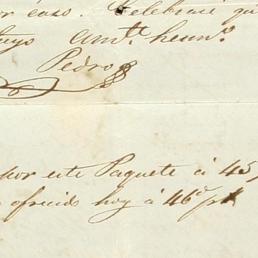 caso. Celebraré
tuyo amte. hermno.
Pedro
por este Paquete á 45
ofrecido hoy á 46